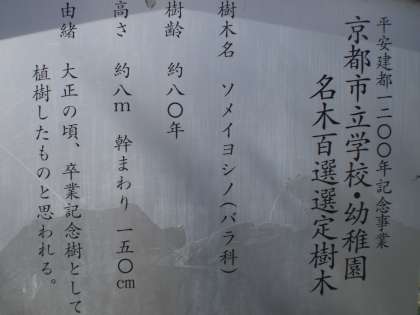 平安建都一二〇〇年記念事業
京都市立学校・幼稚園
名木百選選定樹木
樹木名 ソメイヨシノ(バラ科)
樹齢 約八〇年
高さ 約八m 幹まわり 一五〇cm
由緒 大正の頃、卒業記念樹として
植樹したものと思われる。